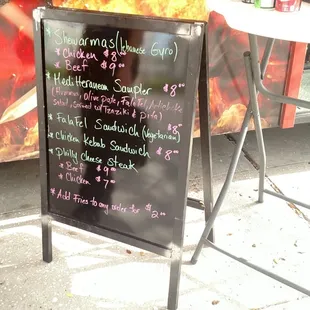 * Shewarmas (Lebanese Gyro)
* Chicken $8.00
* Beef $9.00
* Mediterranean Sampler $8.00
salad, served w/ Tzatziki & Pita)
* Falafel Sandwich (Vegetarian) $8
* Chicken Kebab Sandwich $8.00
* Philly Cheese Steak
* Beef $9.00
* Chicken $7
* Add Fries to any order for $2.00